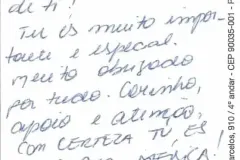 de ti!
Tu és muito impor-
tante e especial.
Muito obrigado
por tudo. Carinho,
apoio e atenção,
com CERTEZA TU, ÉS
MÉDICA!
arcelos, 910 / 4º andar - CEP 90035-001 - P